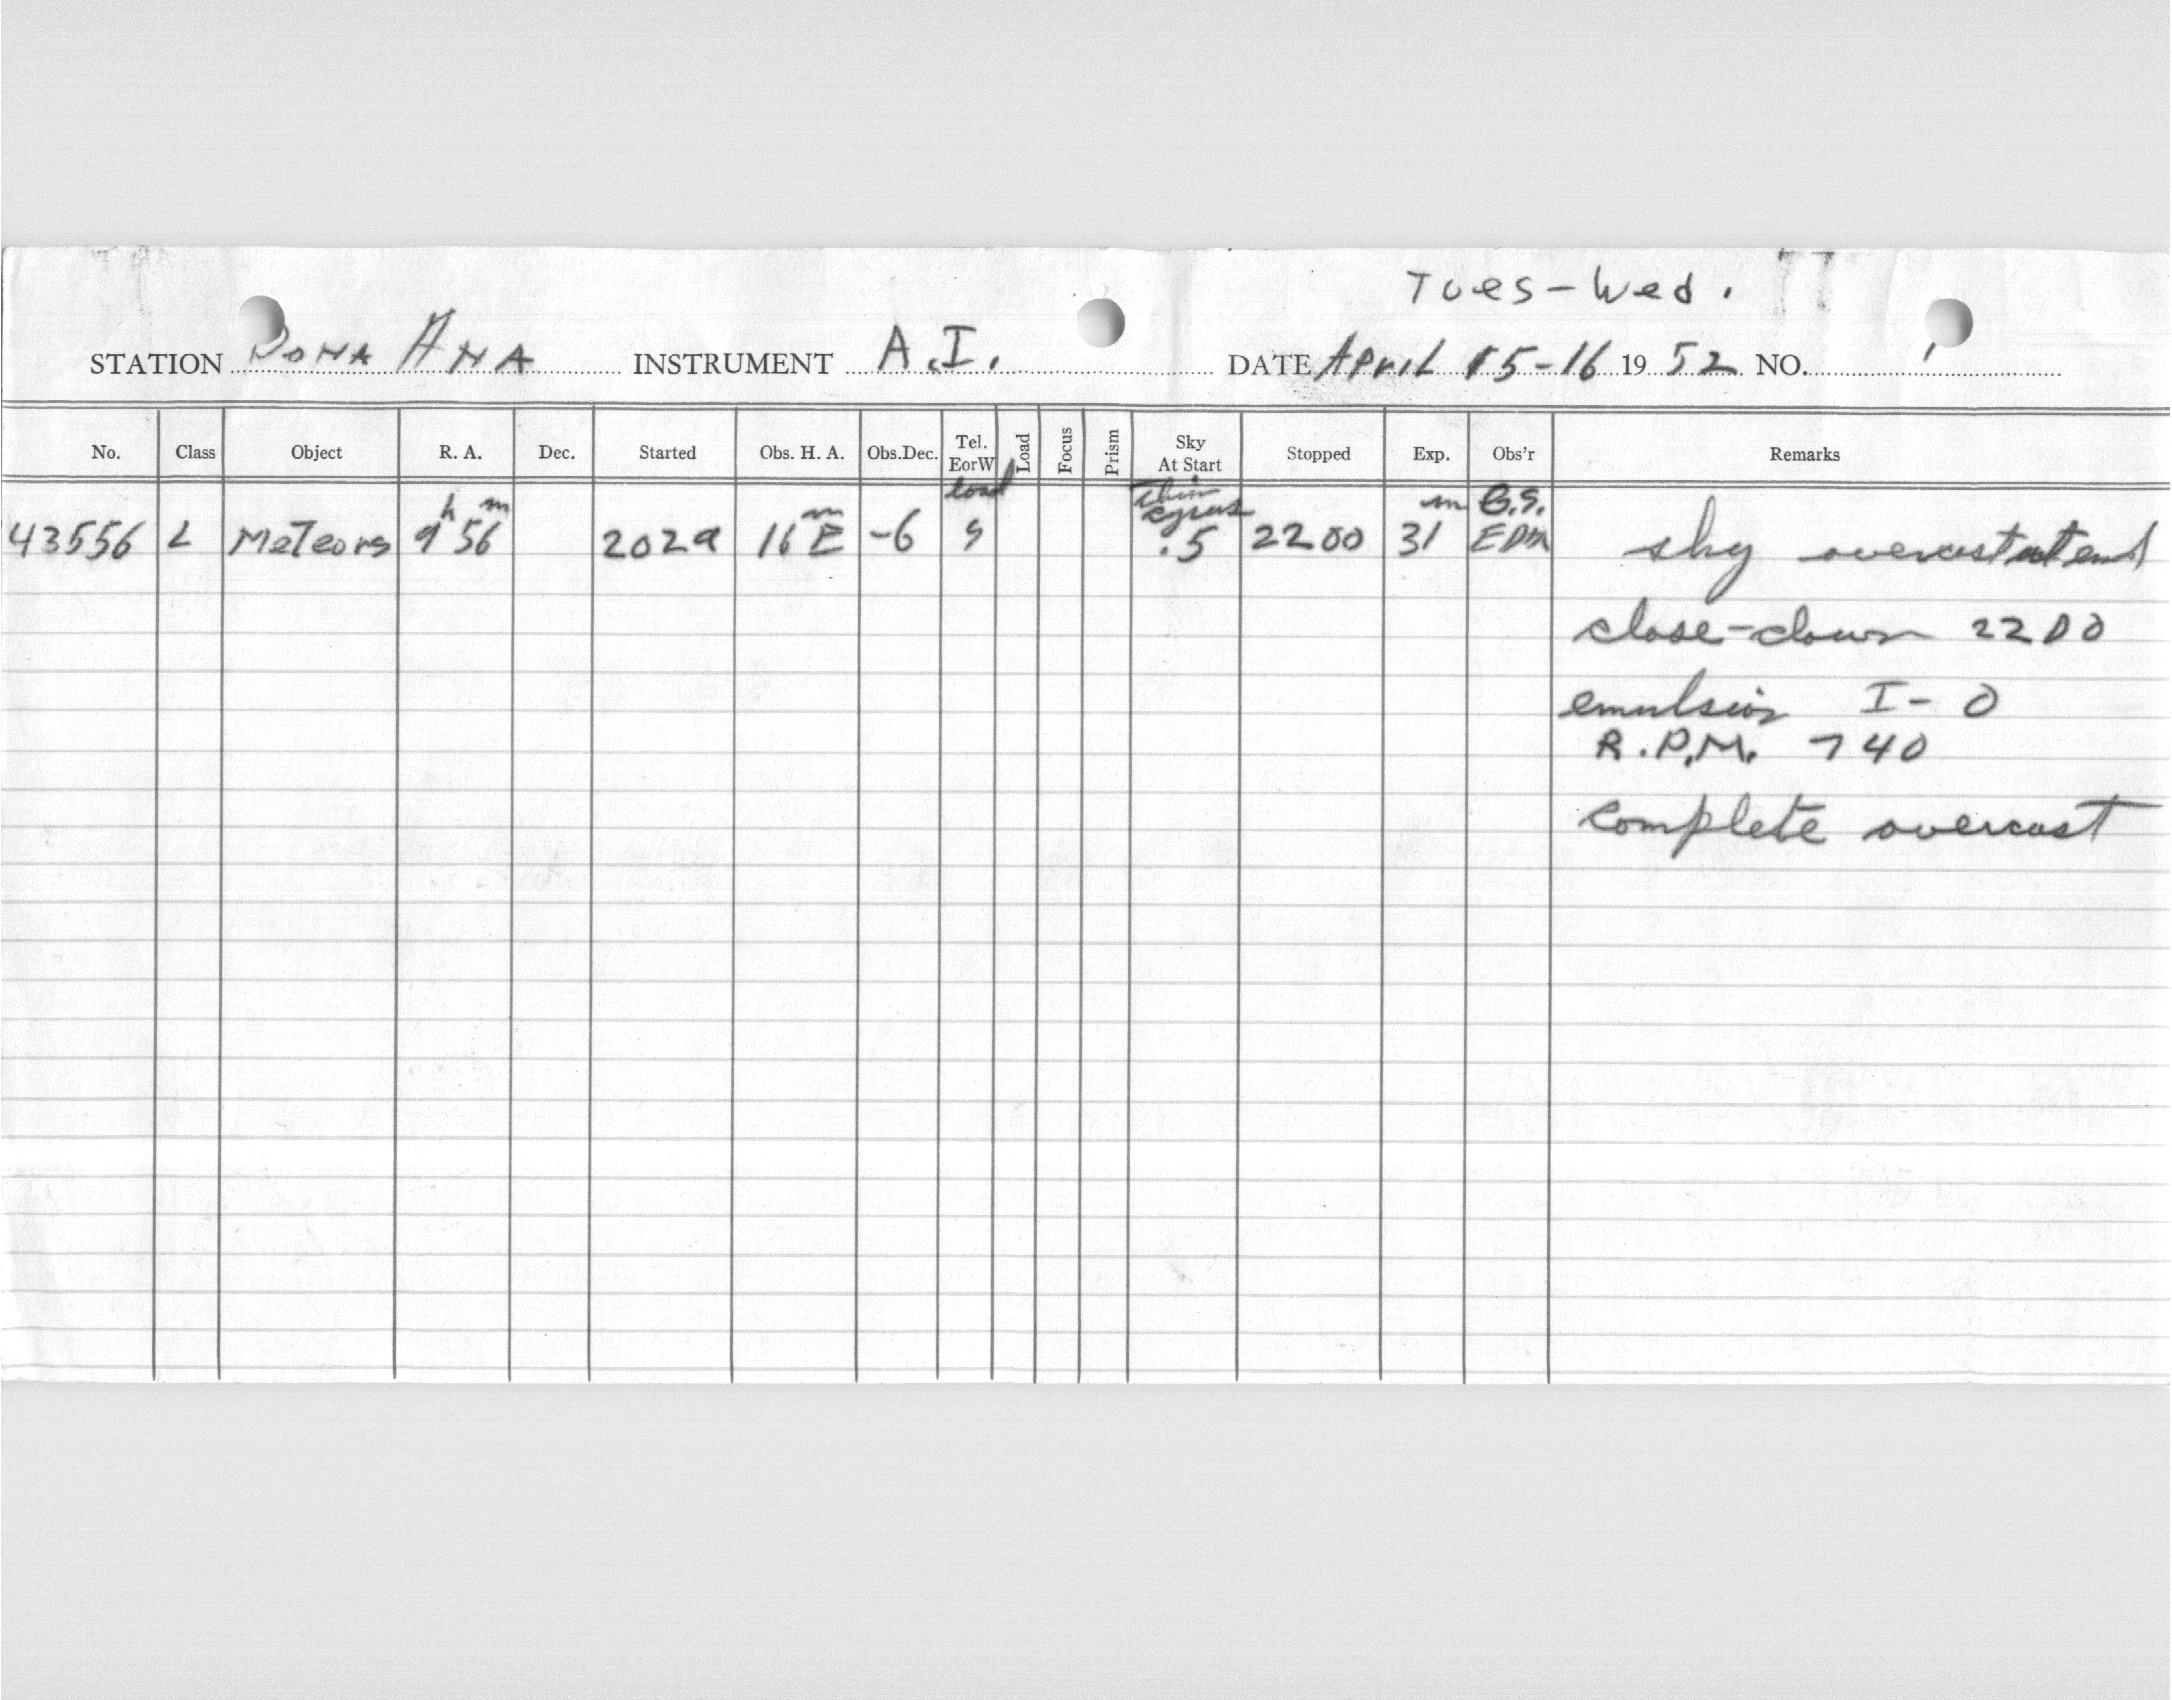 Tues-Wed.
STATION Dona Ana INSTRUMENT A.I. DATE April 15-16 1952 NO.
No. Class Object R. A. Dec. Started Obs. H. A. Obs.Dec. Tel. EorW Load Focus Prism Sky At Start Stopped Exp. Obs'r Remarks
load thin cyrus B.S.
43556 L Meteors 9h 56m 2029 16m E -6 S .5 2200 31m EDM sky overcast at end
close-down 2200
emulsion I-O
R.P.M. 740
complete overcast